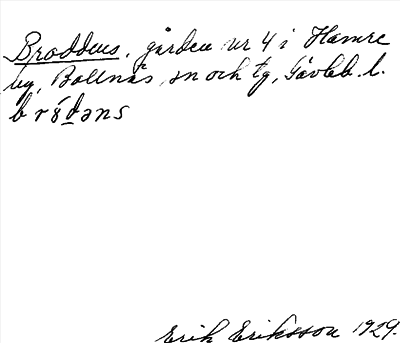 Broddens, gården nr 4 i Hamre
by, Bollnäs sn och tg, Gävleb. l.
bróḏəns
Erik Eriksson 1929.